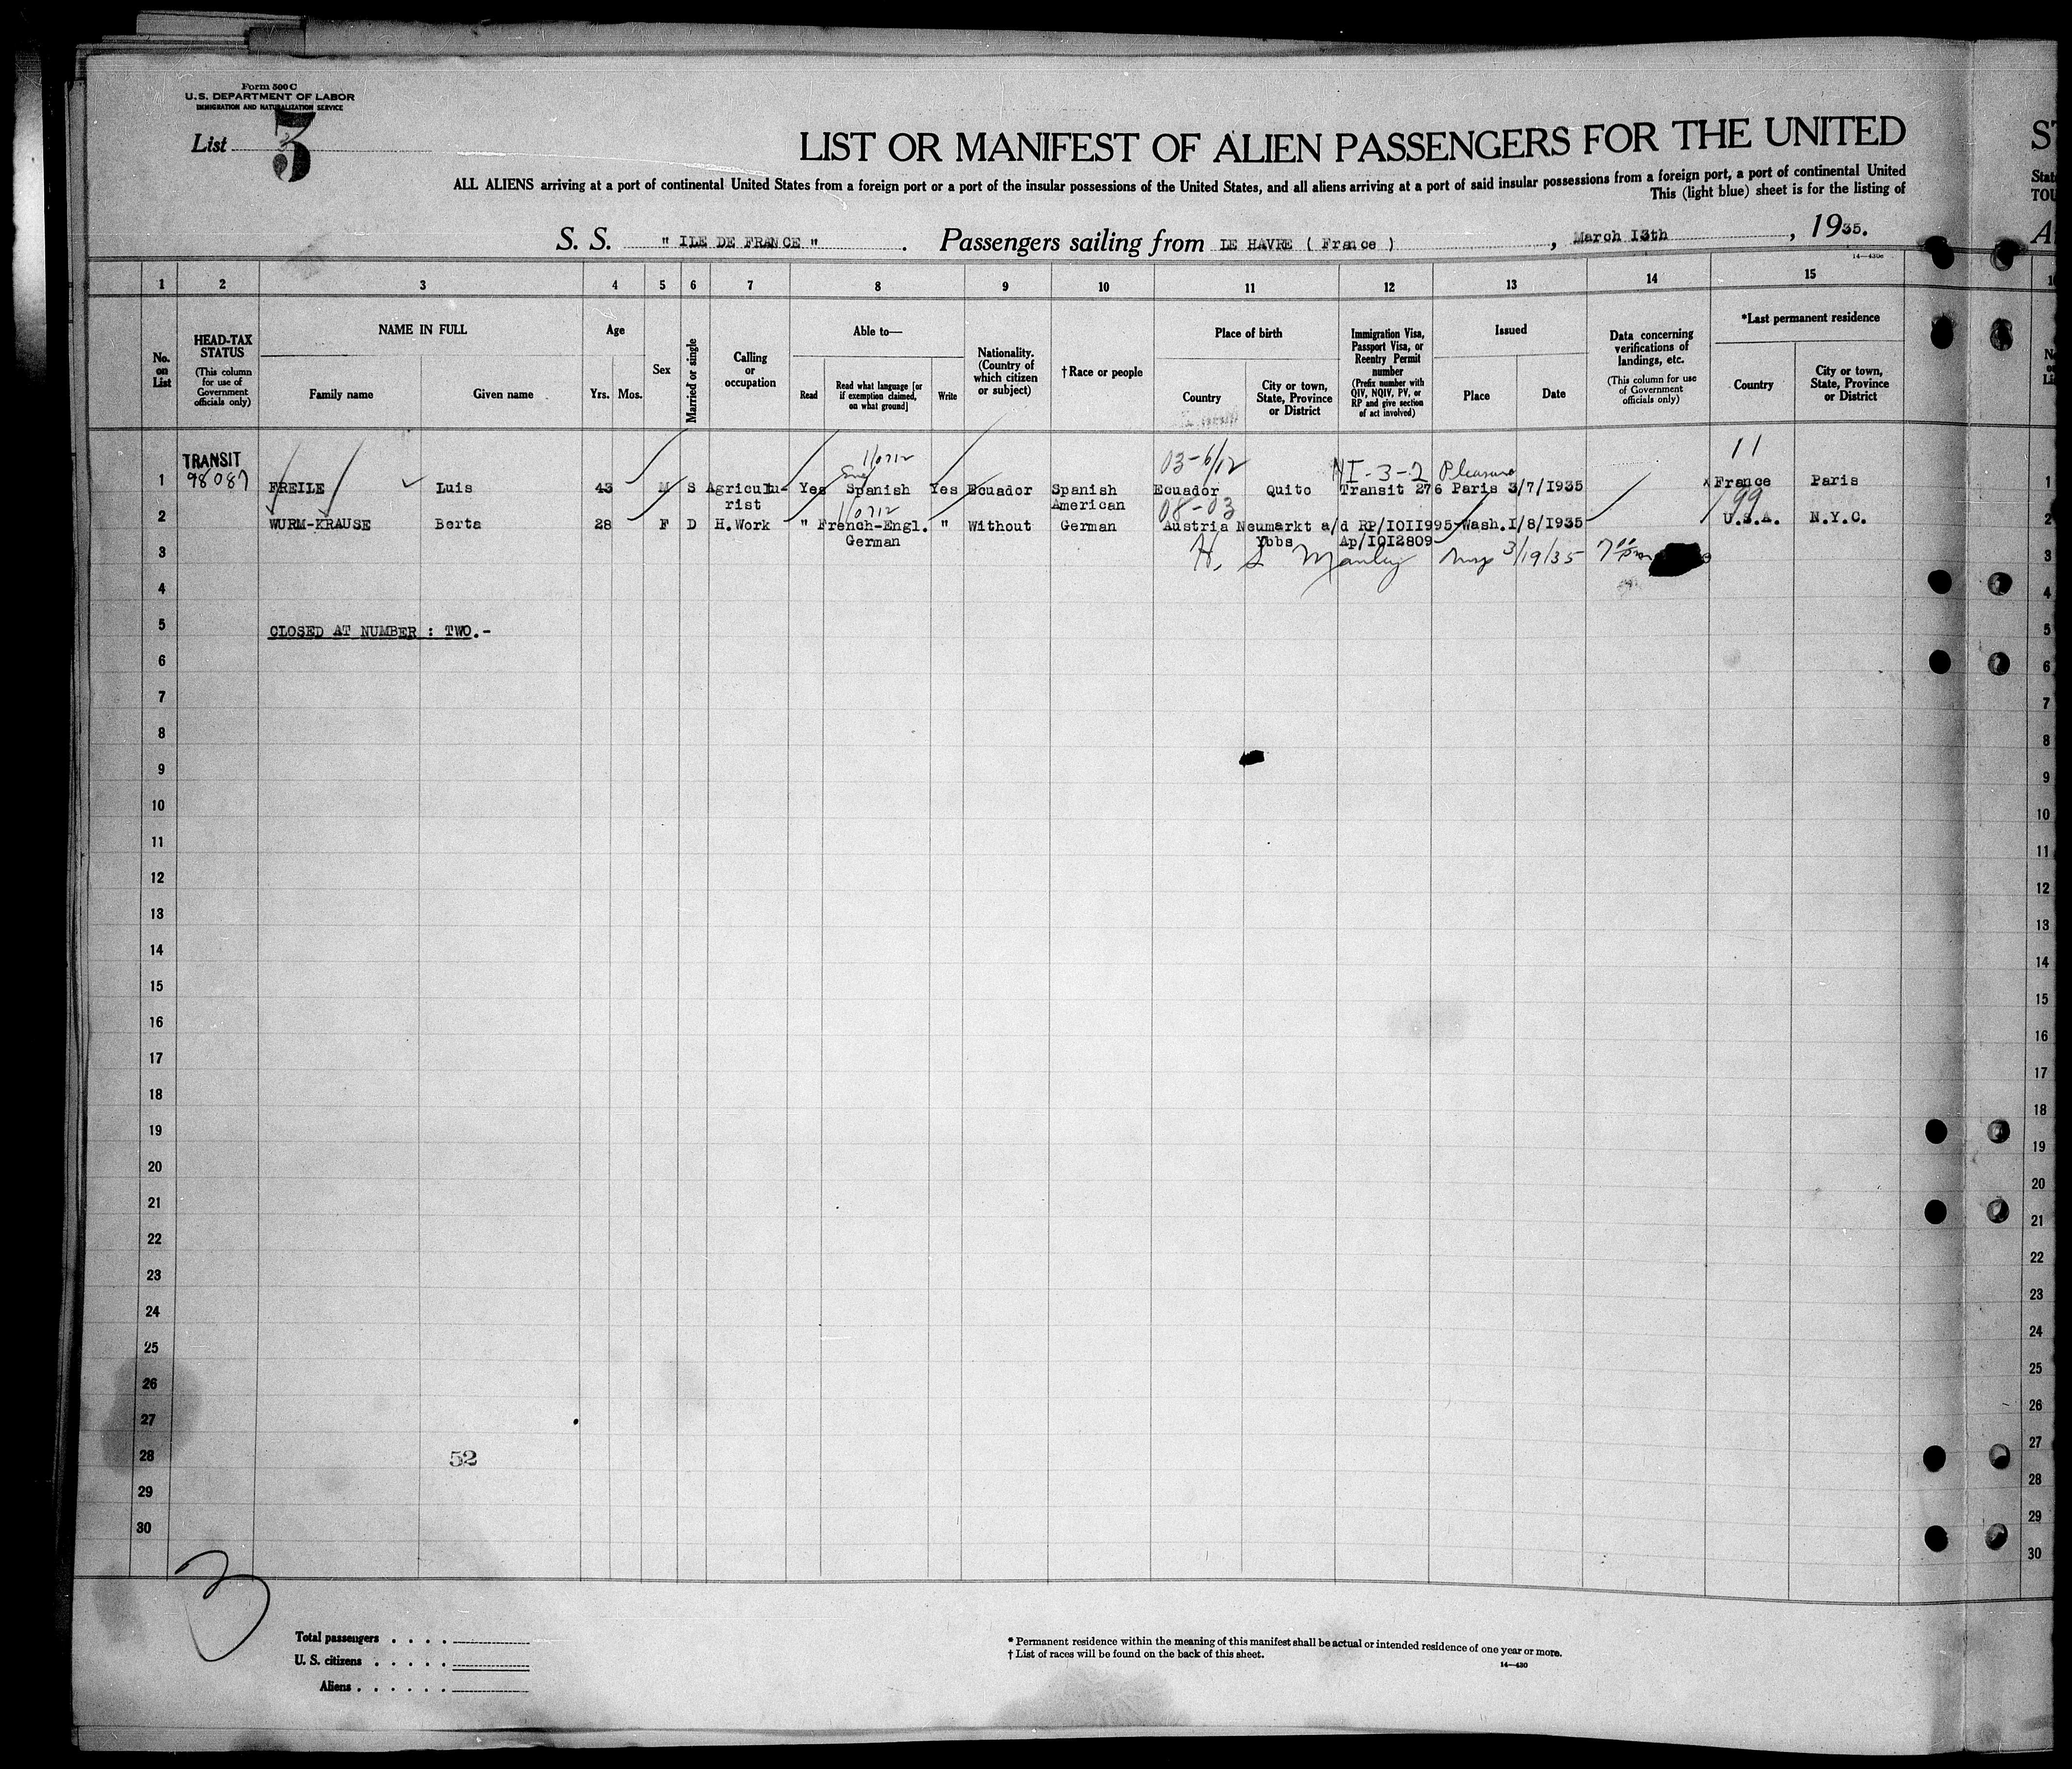 Form 500 C
U. S. DEPARTMENT OF LABOR
IMMIGRATION AND NATURALIZATION SERVICE
List 3
LIST OR MANIFEST OF ALIEN PASSENGERS FOR THE UNITED
ALL ALIENS arriving at a port of continental United States from a foreign port or a port of the insular possessions of the United States, and all aliens arriving at a port of said insular possessions from a foreign port, a port of continental United
This (light blue) sheet is for the listing of
S. S. " ILE DE FRANCE " . Passengers sailing from LE HAVRE ( France ) , March I3th , 1935.
14—430c
1 2 3 4 5 6 7 8 9 10 11 12 13 14 15
No. on List
HEAD-TAX STATUS
(This column for use of Government officials only)
NAME IN FULL
Family name Given name
Age
Yrs. Mos.
Sex
Married or single
Calling or occupation
Able to—
Read
Read what language [or if exemption claimed, on what ground]
Write
Nationality. (Country of which citizen or subject)
† Race or people
Place of birth
Country
City or town, State, Province or District
Immigration Visa, Passport Visa, or Reentry Permit number
(Prefix number with QIV, NQIV, PV, or RP and give section of act involved)
Issued
Place Date
Data concerning verifications of landings, etc.
(This column for use of Government officials only)
*Last permanent residence
Country
City or town, State, Province or District
TRANSIT 11072 03-6/12 NI-3-2 Pleasure 11
98087
1 FREILE Luis 43 M S Agricul- Yes Spanish Yes Ecuador Spanish Ecuador Quito Transit 276 Paris 3/7/I935 France Paris 1
rist American
11072 08-03 99
2 WURM-KRAUSE Berta 28 F D H.Work " French-Engl. " Without German Austria Neumarkt a/d RP/IOII995-Wash.I/8/I935 U.S.A. N.Y.C. 2
German Ybbs Ap/IOI2809
3 H. S Manley 3/19/35 3
4 4
5 CLOSED AT NUMBER : TWO.- 5
6 6
7 7
8 8
9 9
10 10
11 11
12 12
13 13
14 14
15 15
16 16
17 17
18 18
19 19
20 20
21 21
22 22
23 23
24 24
25 25
26 26
27 27
28 52 28
29 29
30 30
3
Total passengers . . . .
U. S. citizens . . . . .
Aliens . . . . . .
* Permanent residence within the meaning of this manifest shall be actual or intended residence of one year or more.
† List of races will be found on the back of this sheet.
14—430